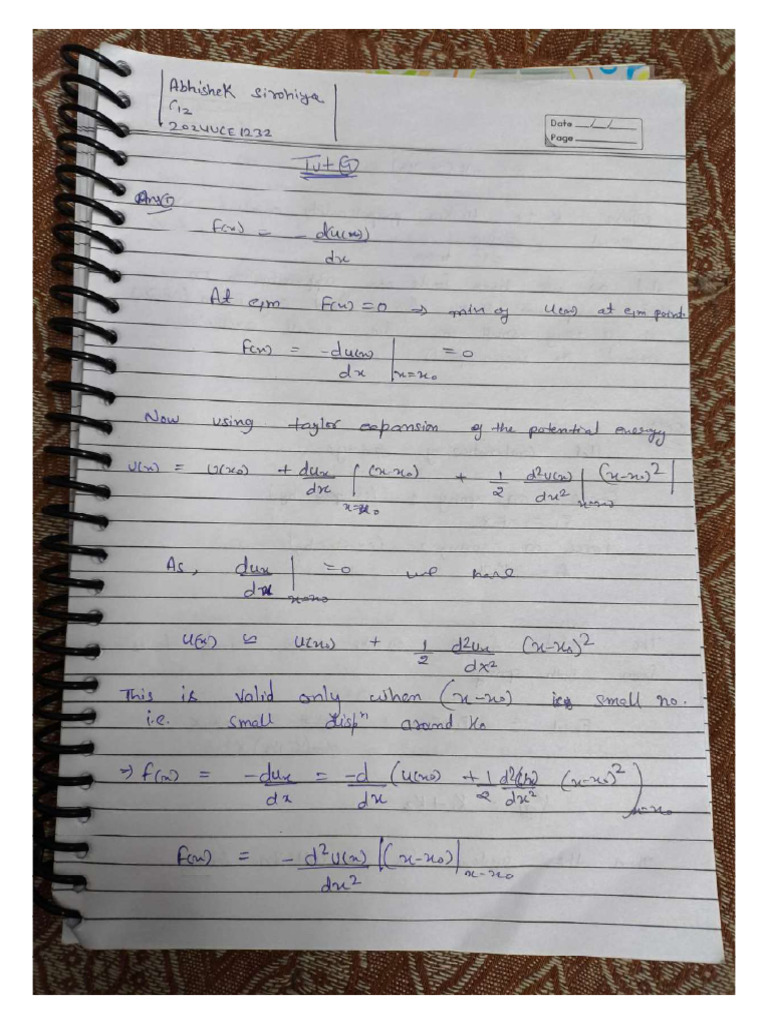 Abhishek Sirohiya
C12
2024UCE1232
Date __/__/__
Page ______
Tut
Ans①
F(x) = - d(u(x)) / dx
At eqm F(x) = 0 → min of U(x) at eqm point
F(x) = -du(x)/dx |x=x₀ = 0
Now using taylor expansion of the potential energy
U(x) = U(x₀) + dux/dx |x=x₀ (x-x₀) + 1/2 d²U(x)/dx² |x=x₀ (x-x₀)² |
As, dux/dx |x=x₀ = 0 we have
U(x) ≃ U(x₀) + 1/2 d²ux/dx² (x-x₀)²
This is valid only when (x-x₀) is small no.
i.e. small dispⁿ around x₀
⇒ f(x) = -dux/dx = -d/dx (U(x₀) + 1/2 d²U(x)/dx² (x-x₀)²)x=x₀
F(x) = - d²U(x)/dx² |(x-x₀)|x=x₀